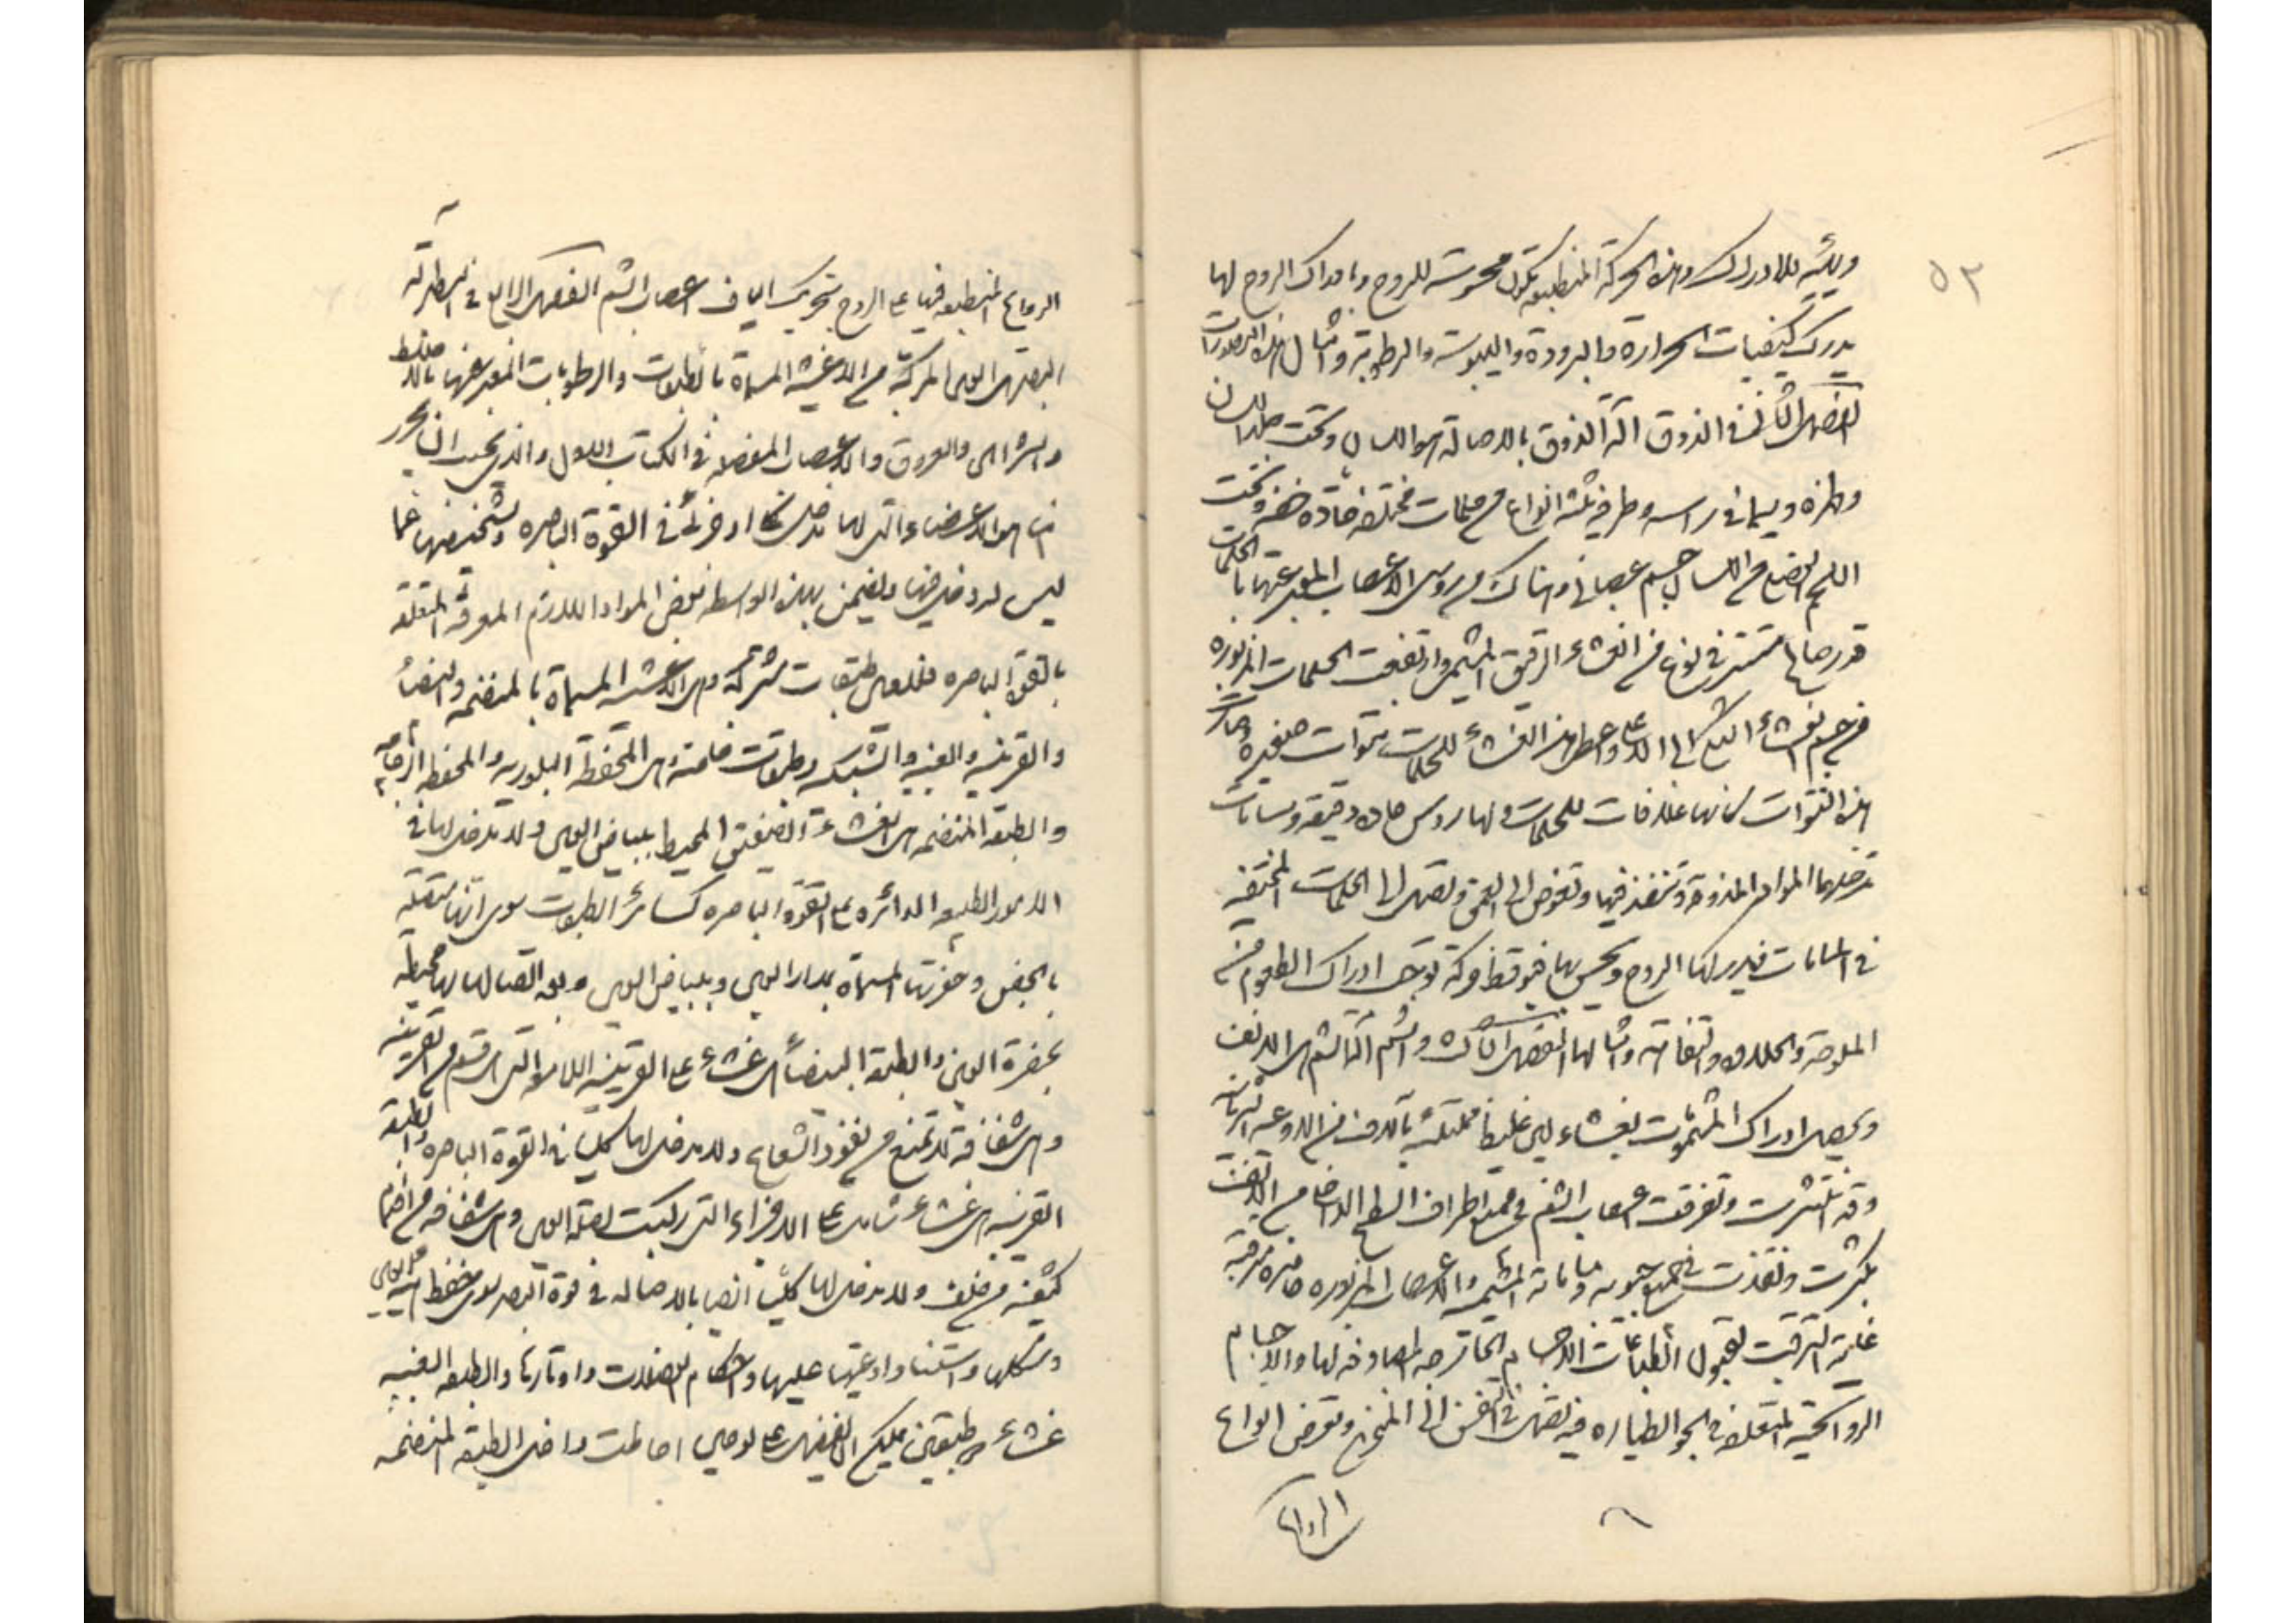 ٥٣
وبيئته للادراك وهذه الحركة المنطبعة تكون محسوسة للروح وبادراك الروح لها
يدرك كيفيات الحرارة والبرودة واليبوسة والرطوبة وامثال هذه
الفصل الثاني في الذوق آلة الذوق بالاصالة هو اللسان وتحت جلد اللسان
وظهره وسيما في راسه وطرفيه ثلثة انواع من حلمات مختلفة وتحت
اللحم من اللسان جسم عصباني وهناك من روس الاعصاب المعبر عنها بالحلمات
تستتر في نوع من الغشاء الرقيق وارتفعت الحلمات المزبوره
من جسم الغشاء الى الاعلى واحاط هذا الغشاء للحلمات نتوات صغيره وصارت
هذه النتوات كانها غلافات للحلمات ولها روس حاده دقيقة ومسامات
تدخلها المواد المذوقة وتنفذ فيها وتغوص الى العمق وتصل الى الحلمات المختفية
في المسامات فيدركها الروح ويحس بها فيوقظ حركة توجب ادراك الطعوم من
الملوحة والحلاوة والتفاهة وامثالها الفصل الثالث في الشم آلة الشم هي الانف
ويحصل ادراك المشمومات بغشاء لين غليظ ممتلئة بآلاف من الاوعية الشريانية
وقد انتشرت وتفرقت اعصاب الشم في جميع اطراف السطح الداخل من الانف
بكثرت ونفذت في جميع جيوبه والاعصاب المزبوره حاضره مترقبة
غاية الترقب لقبول انطباعات الاجسام الخارجه المصادفه لها والاجسام
الروائحية المتعلقة في الجو الطياره فيتصل في النفس الى المنخرين وتعرض انواع
الروائح
الروائح المنطبعة فيها على الروح بتحريك الياف اعصاب الشم الفصل الرابع في البصر آلة
البصر هي العين المركبة من الاغشية المسماة بالطبقات والرطوبات المعبر عنها بالاخلاط
والشرائين والعروق والاعصاب المفصلة في الكتاب الاول والذي يجب ان يحرر
هنا هو الاعضاء التي لها مدخل كلي او جزئي في القوة الباصره وتشخيصها عما
ليس له دخل فيها ويضمن بهذه الواسطه بعض المواد اللازم المعرفة المتعلقة
بالقوة الباصره فللعين طبقات مشتركة وهي الاغشية المسماة بالمنضمه والبيضاء
والقرنيه والعنبيه والشبكيه وطبقات خاصة هي المحفظة البلوريه والمحفظه الزجاجيه
والطبقة المنضمه هي الغشاء الصفيق المحيط ببياض العين ولا مدخل لها في
الامور الطبيعيه الدائره على القوة الباصره كسائر الطبقات سوى انها متصلة
بالجفن وحفرتها المسماة بمدار العين وببياض العين وبعد اتصالها لها محيطة
بحفرة العين والطبقة البيضاء هي غشاء على القرنيه اللامعة التي هي قسم من القرنيه
وهي شفافة لا تمنع من نفوذ الشعاع ولا مدخل لها كليا في القوة الباصره والطبقة
القرنيه هي غشاء شامل على الاجزاء التي ركبت لمقلة العين وهي شفافه من امام
كثيفه من خلف ولا مدخل لها كليا ايضا بالاصاله في قوة البصر سوى حفظ هيئة العين
وشكلها واستناد اوعيتها عليها واستحكام العضلات واوتارها والطبقه العنبيه
غشاء ذو طبقتين احاطت داخل الطبقه المنضمه